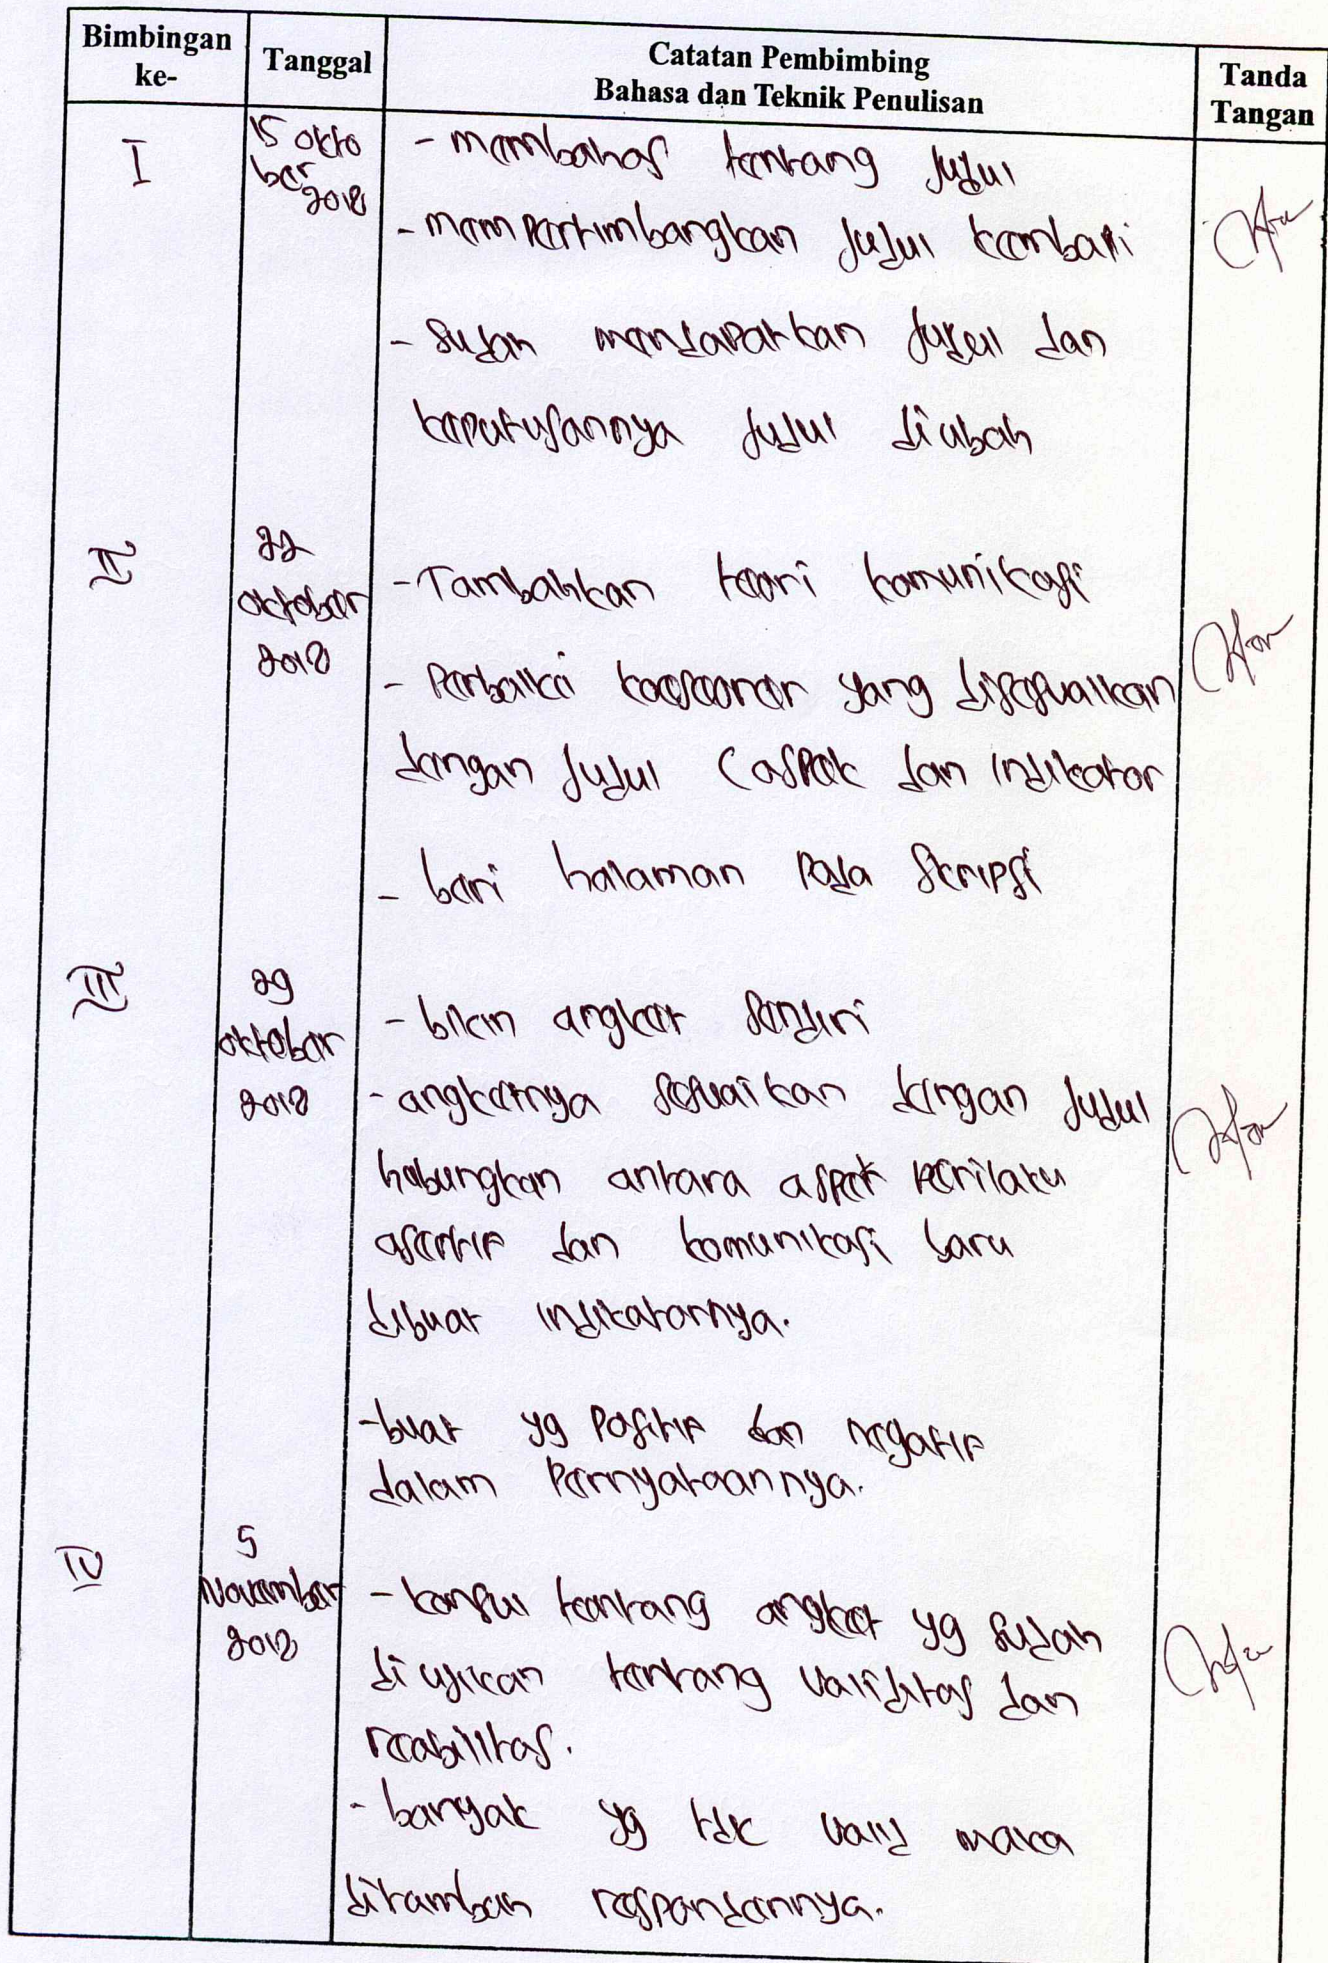 Bimbingan ke-
Tanggal
Catatan Pembimbing
Bahasa dan Teknik Penulisan
Tanda Tangan
I
15 okto
ber
2018
- membahas tentang judul
- mempertimbangkan judul kembali
- sudah mendapatkan judul dan
keputusannya judul diubah
II
22
oktober
2018
- Tambahkan teori komunikasi
- Perbaiki koesoener yang disesuaikan
dengan judul (aspek dan indikator
- beri halaman pada skripsi
III
29
oktober
2018
- bikin angket sendiri
- angketnya sesuaikan dengan judul
hubungkan antara aspek perilaku
asertif dan komunikasi baru
dibuat indikatornya.
- buat yg positif dan negatif
dalam Pernyataannya.
IV
5
November
2018
- konsul tentang angket yg sudah
di ujikan tentang validitas dan
reabilitas.
- banyak yg tdk valid maka
ditambah respondennya.